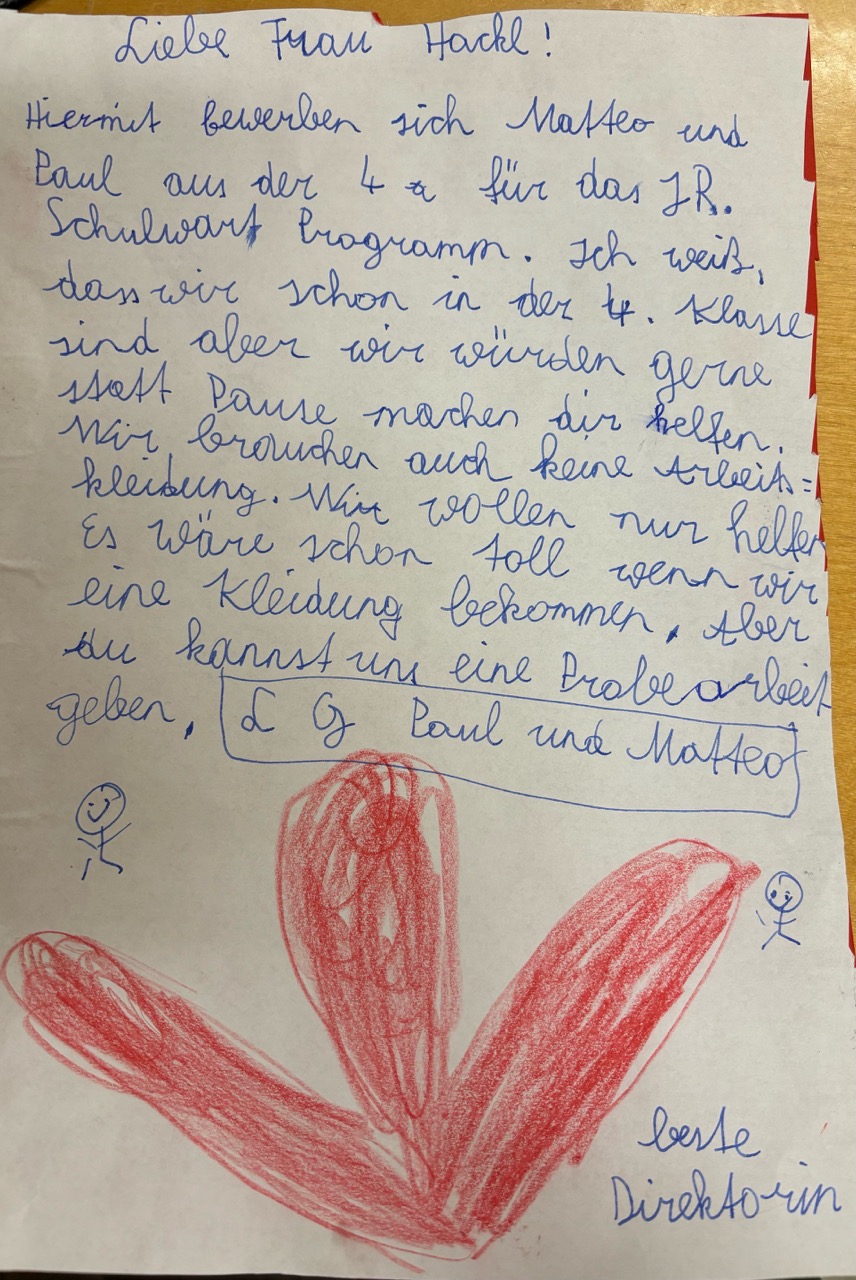 Liebe Frau Hackl!
Hiermit bewerben sich Matteo und
Paul aus der 4 a für das JR.
Schulwart Programm. Ich weiß,
dass wir schon in der 4. Klasse
sind aber wir würden gerne
statt Pause machen dir helfen.
Wir brauchen auch keine Arbeits=
kleidung. Wir wollen nur helfen
Es wäre schon toll wenn wir
eine Kleidung bekommen, Aber
du kannst uns eine Probearbeit
geben, L G Paul und Matteo
beste
Direktorin